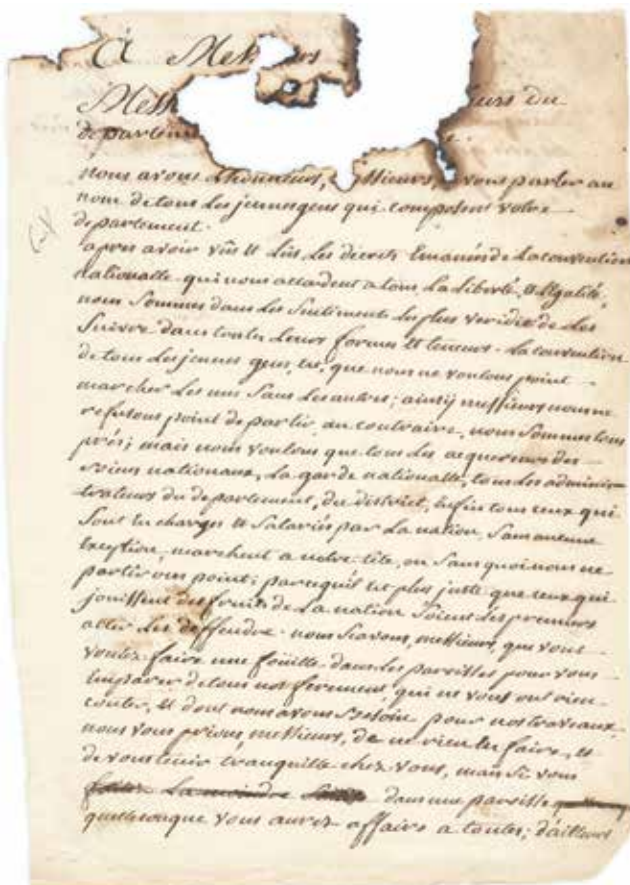 A Mes rs
Mess eurs du
departeme e.
nous avons Lhonneur, Messieurs, vous parler au
nom de tous Les jeunes gens qui composent votre
departement.
apres avoir vûs et lûs Les decrets Emanés de La convention
nationalle qui nous accordent a tous La liberté, et Egalité,
nous Sommes dans Les Sentiments Les plus veridits de Les
Suivre dans toutes Leurs formes et teneurs. La convention
de tous Les jeunes gens, est, que nous ne voulons point
marcher Les uns Sans Les autres; ainsy messieurs nous ne
refusons point de partir, au contraire, nous Sommes tous
prés; mais nous voulons que tous Les acquereurs des
Biens nationaux, La garde nationalle, tous Les adminis-
trateurs du departement, du district, Enfin tous ceux qui
Sont En charges et Salariés par La nation, Sans aucune
Exeption, marchent a notre tête, ou Sans quoi nous ne
partirons point; parcequ'il est plus juste que ceux qui
jouissent des fruits de La nation Soient Les premiers
aller Les deffendre. nous Scavons, messieurs, que vous
voulez faire une foüille dans Les paroisses pour vous
Emparer de tous nos ferments, qui ne vous ont rien
couter, et dont nous avons Besoin pour nos travaux.
nous vous prions messieurs, de n'en rien En faire, et
de vous tenir tranquille chez vous, mais Si vous
faites La moindre dans une paroisse
quelconque vous aurez affaire a toutes; d'ailleurs